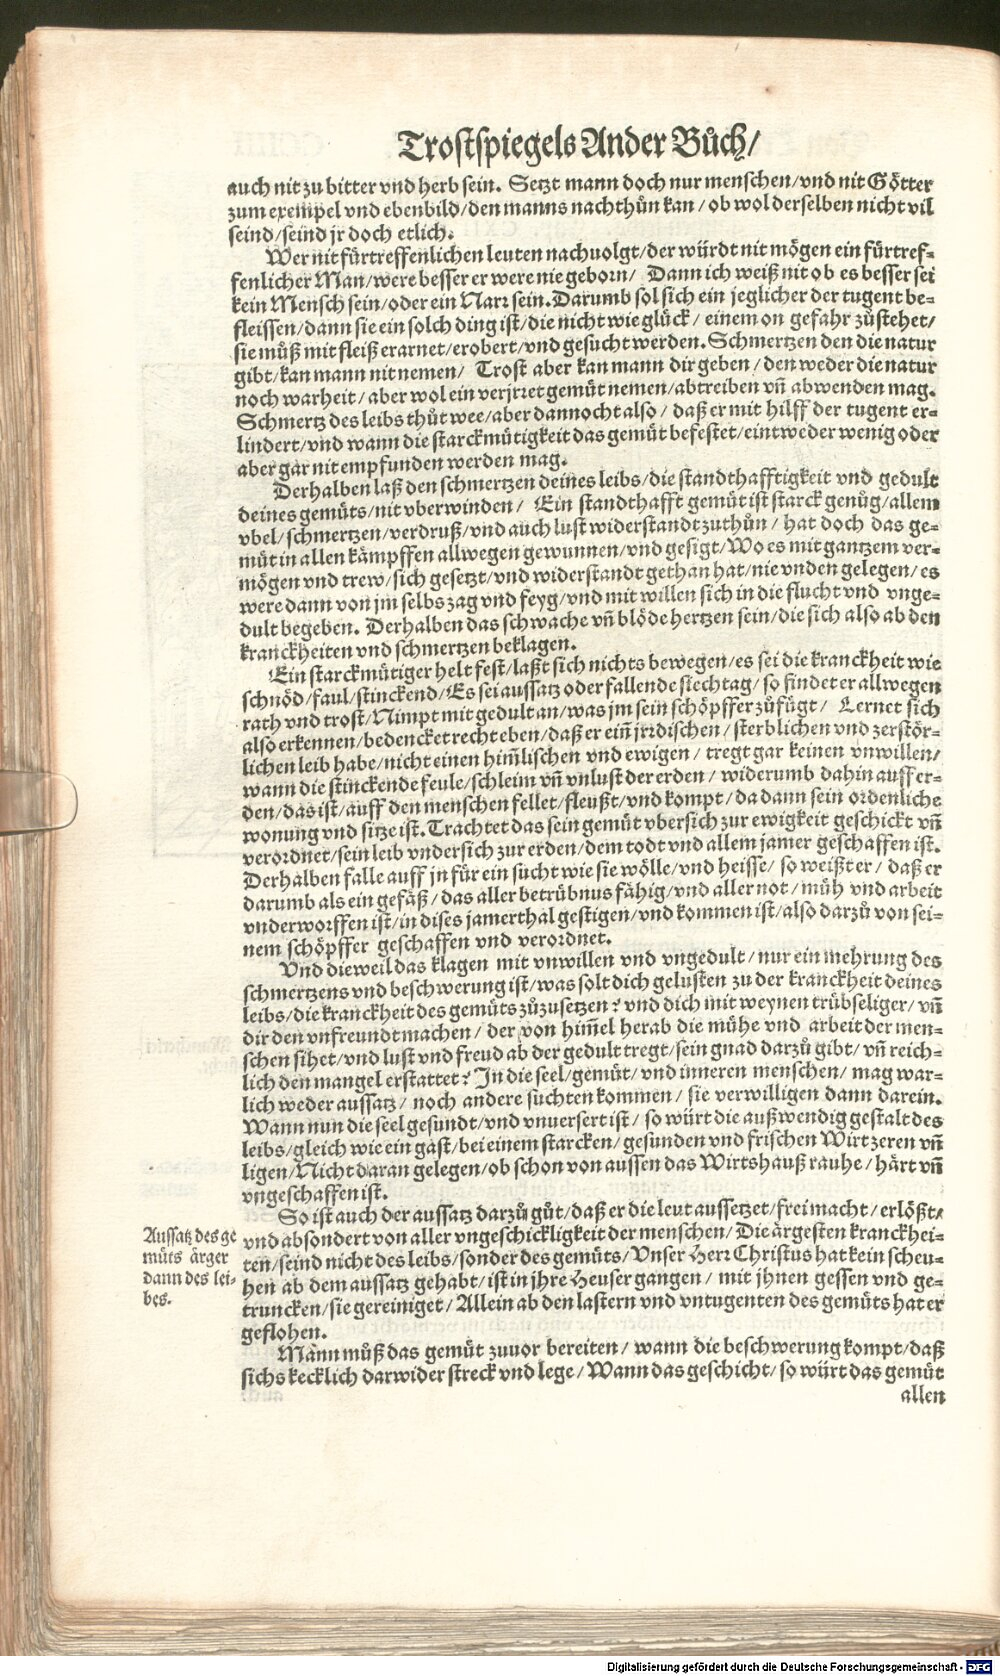 Trostspiegels Ander Bůch/
auch nit zu bitter vnd herb sein. Setzt mann doch nur menschen/vnd nit Götter
zum exempel vnd ebenbild/den manns nachthůn kan/ob wol derselben nicht vil
seind/seind jr doch etlich.
Wer nit fürtreffenlichen leuten nachuolgt/der würdt nit mögen ein fürtref-
fenlicher Man/were besser er were nie geborn/ Dann ich weiß nit ob es besser sei
kein Mensch sein/oder ein Narr sein. Darumb sol sich ein jeglicher der tugent be-
fleissen/dann sie ein solch ding ist/die nicht wie glück/ einem on gefahr zůstehet/
sie můß mit fleiß erarnet/erobert/vnd gesucht werden. Schmertzen den die natur
gibt/kan mann nit nemen/ Trost aber kan mann dir geben/den weder die natur
noch warheit/aber wol ein verjrret gemüt nemen/abtreiben vñ abwenden mag.
Schmertz des leibs thůt wee/aber dannocht also/ daß er mit hilff der tugent er-
lindert/vnd wann die starckmütigkeit das gemüt befestet/eintweder wenig oder
aber gar nit empfunden werden mag.
Derhalben laß den schmertzen deines leibs/die standthafftigkeit vnd gedult
deines gemüts/nit vberwinden/ Ein standthafft gemüt ist starck genůg/allem
vbel/schmertzen/verdruß/vnd auch lust widerstandt zuthůn/ hat doch das ge-
müt in allen kämpffen allwegen gewunnen/vnd gesigt/Wo es mit gantzem ver-
mögen vnd trew/sich gesetzt/vnd widerstandt gethan hat/nie vnden gelegen/es
were dann von jm selbs zag vnd feyg/vnd mit willen sich in die flucht vnd vnge-
dult begeben. Derhalben das schwache vñ blöde hertzen sein/die sich also ab den
kranckheiten vnd schmertzen beklagen.
Ein starckmütiger helt fest/laßt sich nichts bewegen/es sei die kranckheit wie
schnöd/faul/stinckend/Es sei aussatz oder fallende siechtag/ so findet er allwegen
rath vnd trost/Nimpt mit gedult an/was jm sein schöpffer zůfügt/ Lernet sich
also erkennen/bedencket recht eben/daß er eiñ jrrdischen/sterblichen vnd zerstör-
lichen leib habe/nicht einen him̃lischen vnd ewigen/ tregt gar keinen vnwillen/
wann die stinckende feule/schleim vñ vnlust der erden/widerumb dahin auff er-
den/das ist/auff den menschen fellet/fleußt/vnd kompt/da dann sein ordenliche
wonung vnd sitze ist. Trachtet das sein gemüt vbersich zur ewigkeit geschickt vñ
verordnet/sein leib vndersich zur erden/dem todt vnd allem jamer geschaffen ist.
Derhalben falle auff jn für ein sucht wie sie wölle/vnd heisse/ so weißt er/ daß er
darumb als ein gefäß/das aller betrübnus fähig/vnd aller not/müh vnd arbeit
vnderworffen ist/in dises jamerthal gestigen/vnd kommen ist/also darzů von sei-
nem schöpffer geschaffen vnd verordnet.
Vnd dieweil das klagen mit vnwillen vnd vngedult/nur ein mehrung des
schmertzens vnd beschwerung ist/was solt dich gelusten zu der kranckheit deines
leibs/die kranckheit des gemüts zůzusetzen? vnd dich mit weynen trübseliger/vñ
dir den vnfreundt machen/ der von him̃el herab die mühe vnd arbeit der men-
schen sihet/vnd lust vnd freud ab der gedult tregt/sein gnad darzů gibt/vñ reich-
lich den mangel erstattet? In die seel/gemüt/vnd inneren menschen/mag war-
lich weder aussatz/ noch andere suchten kommen/ sie verwilligen dann darein.
Wann nun die seel gesundt/vnd vnuersert ist/ so würt die außwendig gestalt des
leibs/gleich wie ein gast/bei einem starcken/gesunden vnd frischen Wirt zeren vñ
ligen/Nicht daran gelegen/ob schon von aussen das Wirtshauß rauhe/härt vñ
vngeschaffen ist.
So ist auch der aussatz darzů gůt/daß er die leut aussetzet/frei macht/erlößt/
vnd absondert von aller vngeschickligkeit der menschen/Die ärgesten kranckhei-
ten/seind nicht des leibs/sonder des gemüts/Vnser Herr Christus hat kein scheu-
hen ab dem aussatz gehabt/ist in jhre Heuser gangen/mit jhnen gessen vnd ge-
truncken/sie gereiniget/Allein ab den lastern vnd vntugenten des gemüts hat er
geflohen.
Aussatz des ge
müts ärger
dann des lei-
bes.
Mann můß das gemüt zuuor bereiten/ wann die beschwerung kompt/daß
sichs kecklich darwider streck vnd lege/Wann das geschicht/so würt das gemüt
allen
Digitalisierung gefördert durch die Deutsche Forschungsgemeinschaft - DFG